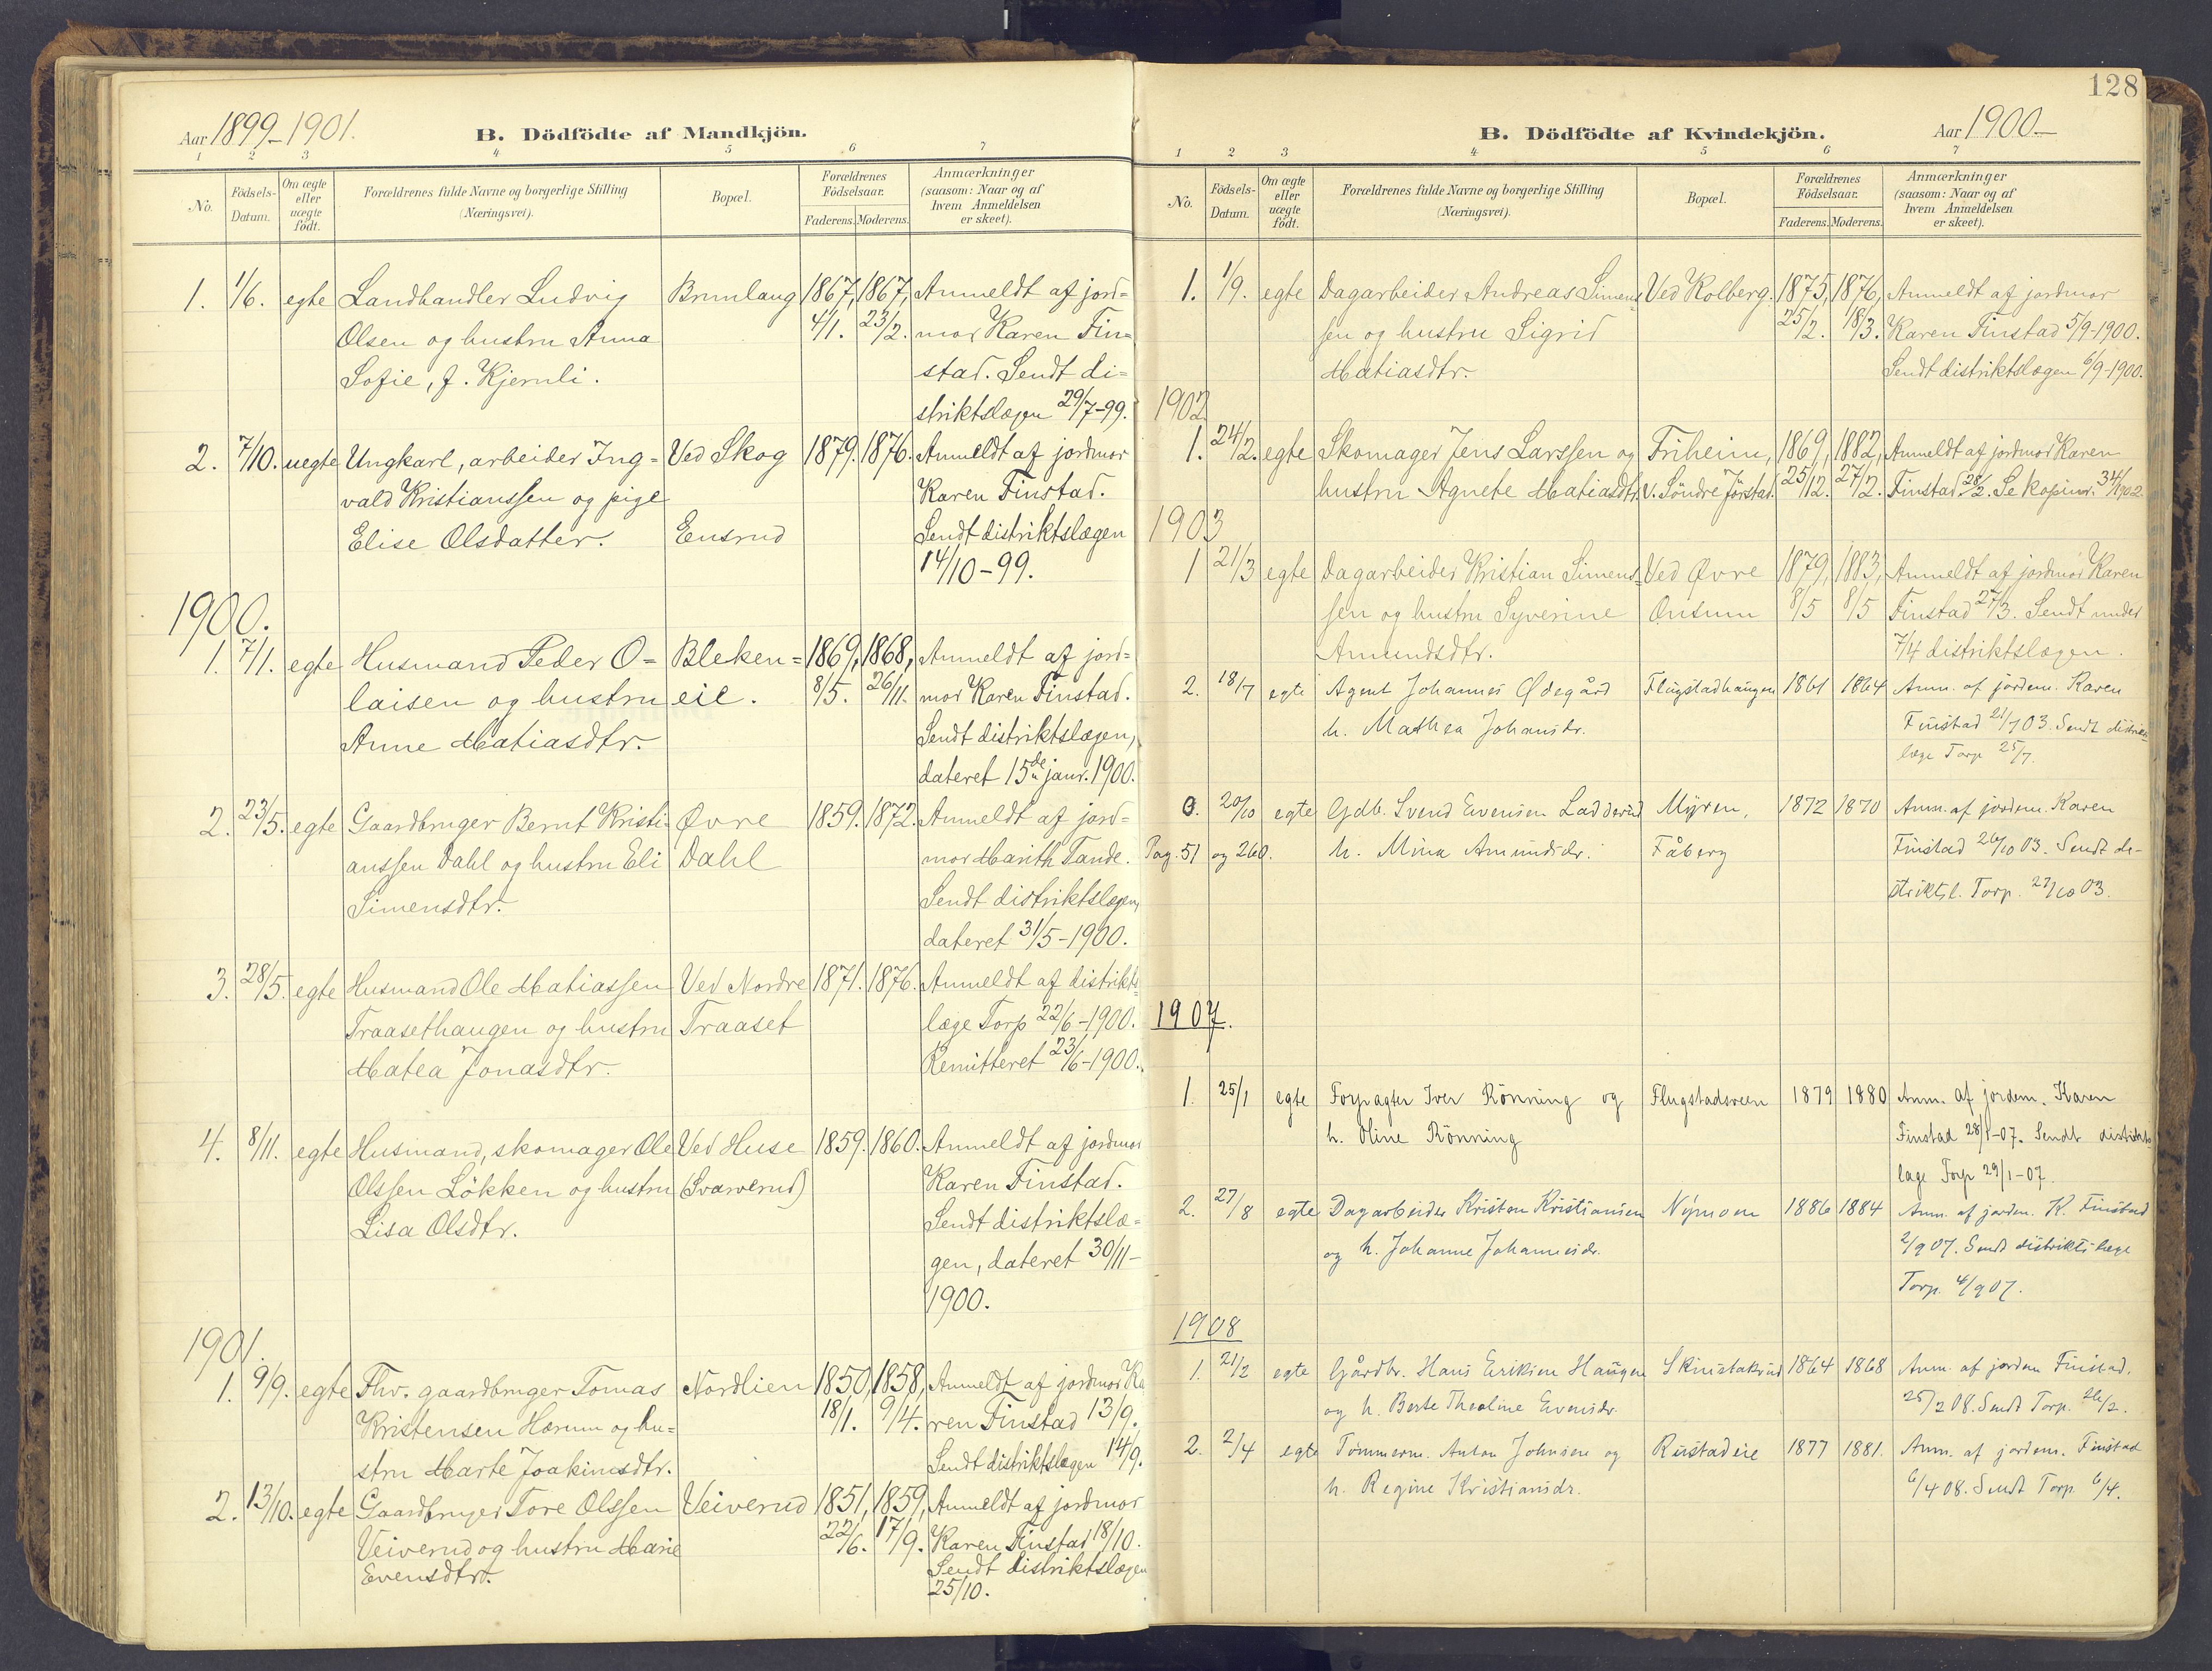 Aar 1899-1901. B. Dödfödte af Mandkjön.
1 2 3 4 5 6 7
No. Födsels-Datum. Om ægte eller uægte födt. Forældrenes fulde Navne og borgerlige Stilling (Næringsvei). Bopæl. Forældrenes Födselsaar. Faderens. Moderens. Anmærkninger (saasom: Naar og af hvem Anmeldelsen er skeet).
1. 1/6. egte Landhandler Ludvig Brunlaug 1867, 1867, Anmeldt af jord=
Olsen og hustru Anna 4/1. 23/2. mor Karen Fin=
Sofie, f. Kjernli. stad. Sendt di=
striktslægen 29/7-99.
2. 7/10. uegte Ungkarl, arbeider Ing= Ved Skog 1879. 1876. Anmeldt af jordmor
vald Kristianssen og pige Karen Finstad.
Elise Olsdatter. Ensrud Sendt distriktslægen
14/10-99.
1900.
1. 7/1. egte Husmand Peder O= Bleken= 1869, 1868, Anmeldt af jord=
laisen og hustru eie. 8/5. 26/11. mor Karen Finstad.
Anne Matiasdtr. Sendt distriktslægen,
dateret 15de janr. 1900.
2. 23/5. egte Gaardbruger Bernt Kristi- Øvre 1859. 1872. Anmeldt af jord=
anssen Dahl og hustru Eli Dahl mor Marith Tande.
Simensdtr. Sendt distriktslægen,
dateret 31/5-1900.
3. 28/5. egte Husmand Ole Matiassen Ved Nordre 1871. 1876. Anmeldt af distrikts=
Traasethaugen og hustru Traaset læge Torp 22/6-1900.
Matea Jonasdtr. Remitteret 23/6-1900.
4. 8/11. egte Husmand, skomager Ole Ved Huse 1859. 1860. Anmeldt af jordmor
Olssen Lökken og hustru (Svarverud) Karen Finstad.
Lisa Olsdtr. Sendt distriktslæ=
gen, dateret 30/11-
1900.
1901.
1. 9/9. egte Fhv. gaardbruger Tomas Nordlien 1850, 1858, Anmeldt af jordmor Ka
Kristensen Hærum og hu= 18/1. 9/4. ren Finstad 13/9.
stru Marte Joakimsdtr. Sendt distriktslægen 14/9.
2. 13/10. egte Gaardbruger Tore Olssen Veiverud 1851, 1859, Anmeldt af jordmor
Veiverud og hustru Marie 22/6. 17/9. Karen Finstad 18/10.
Evensdtr. Sendt distriktslægen
25/10.
128
B. Dödfödte af Kvindekjön. Aar 1900-
1 2 3 4 5 6 7
No. Födsels-Datum. Om ægte eller uægte födt. Forældrenes fulde Navne og borgerlige Stilling (Næringsvei). Bopæl. Forældrenes Födselsaar. Faderens. Moderens. Anmærkninger (saasom: Naar og af hvem Anmeldelsen er skeet).
1. 1/9. egte Dagarbeider Andreas Simens= Ved Kolberg. 1875, 1876, Anmeldt af jordmor
sen og hustru Sigrid 25/2. 18/3. Karen Finstad 5/9-1900.
Matiasdtr. Sendt distriktslægen 6/9-1900.
1902
1. 24/2. egte Skomager Jens Larssen og Friheim, 1869, 1882, Anmeldt af jordmor Karen
hustru Agnete Matiasdtr. v. Söndre Jörstad. 25/12. 27/2. Finstad 28/2. Se kopinr. 34/1902.
1903
1 21/3 egte Dagarbeider Kristian Simens= Ved Øvre 1879, 1883, Anmeldt af jordmor Karen
sen og hustru Syverine Onsum 8/5 8/5 Finstad 27/3. Sendt under
Amundsdtr. 7/4 distriktslægen.
2. 18/7 egte Agent Johannes Ødegård Flugstadhaugen 1861 1864 Anm. af jordem. Karen
h. Mathea Johansdr. Finstad 21/7 03. Sendt distrikts-
læge Torp 25/7.
0. 20/10 egte Gdb. Svend Evensen Ladderud Myren, 1872 1870 Anm. af jordem. Karen
Pag. 51 og 260. h. Mina Amundsdr. Fåberg Finstad 26/10 03. Sendt di-
striktsl. Torp. 27/10 03.
1907.
1. 25/1 egte Forpagter Iver Rönning og Flugstadsveen 1879 1880 Anm. af jordem. Karen
h. Oline Rönning Finstad 28/1-07. Sendt distrikts
læge Torp 29/1-07.
2. 27/8 egte Dagarbeider Kristian Kristiansen Nymoen 1886 1884 Anm. af jordem. K. Finstad
og h. Johanne Johannesdr. 2/9 07. Sendt distriktslæge
Torp. 4/9 07.
1908
1. 21/2 egte Gårdbr. Hans Eriksen Haugen Skinstakrud 1864 1868 Anm. af jordem Finstad.
og h. Berte Theoline Evensdr. 25/2 08. Sendt Torp. 26/2.
2. 2/4 egte Tömmerm. Anton Johnsen og Rustadeie 1877 1881. Anm. af jordem. Finstad
h. Regine Kristiansdr. 6/4 08. Sendt Torp 6/4.